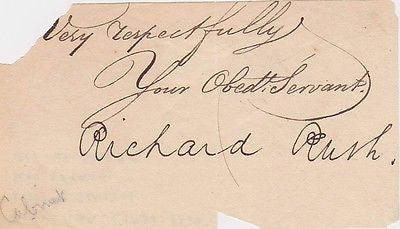 Very respectfully
Your Obedt. Servant.
Richard Rush.
Cabinet